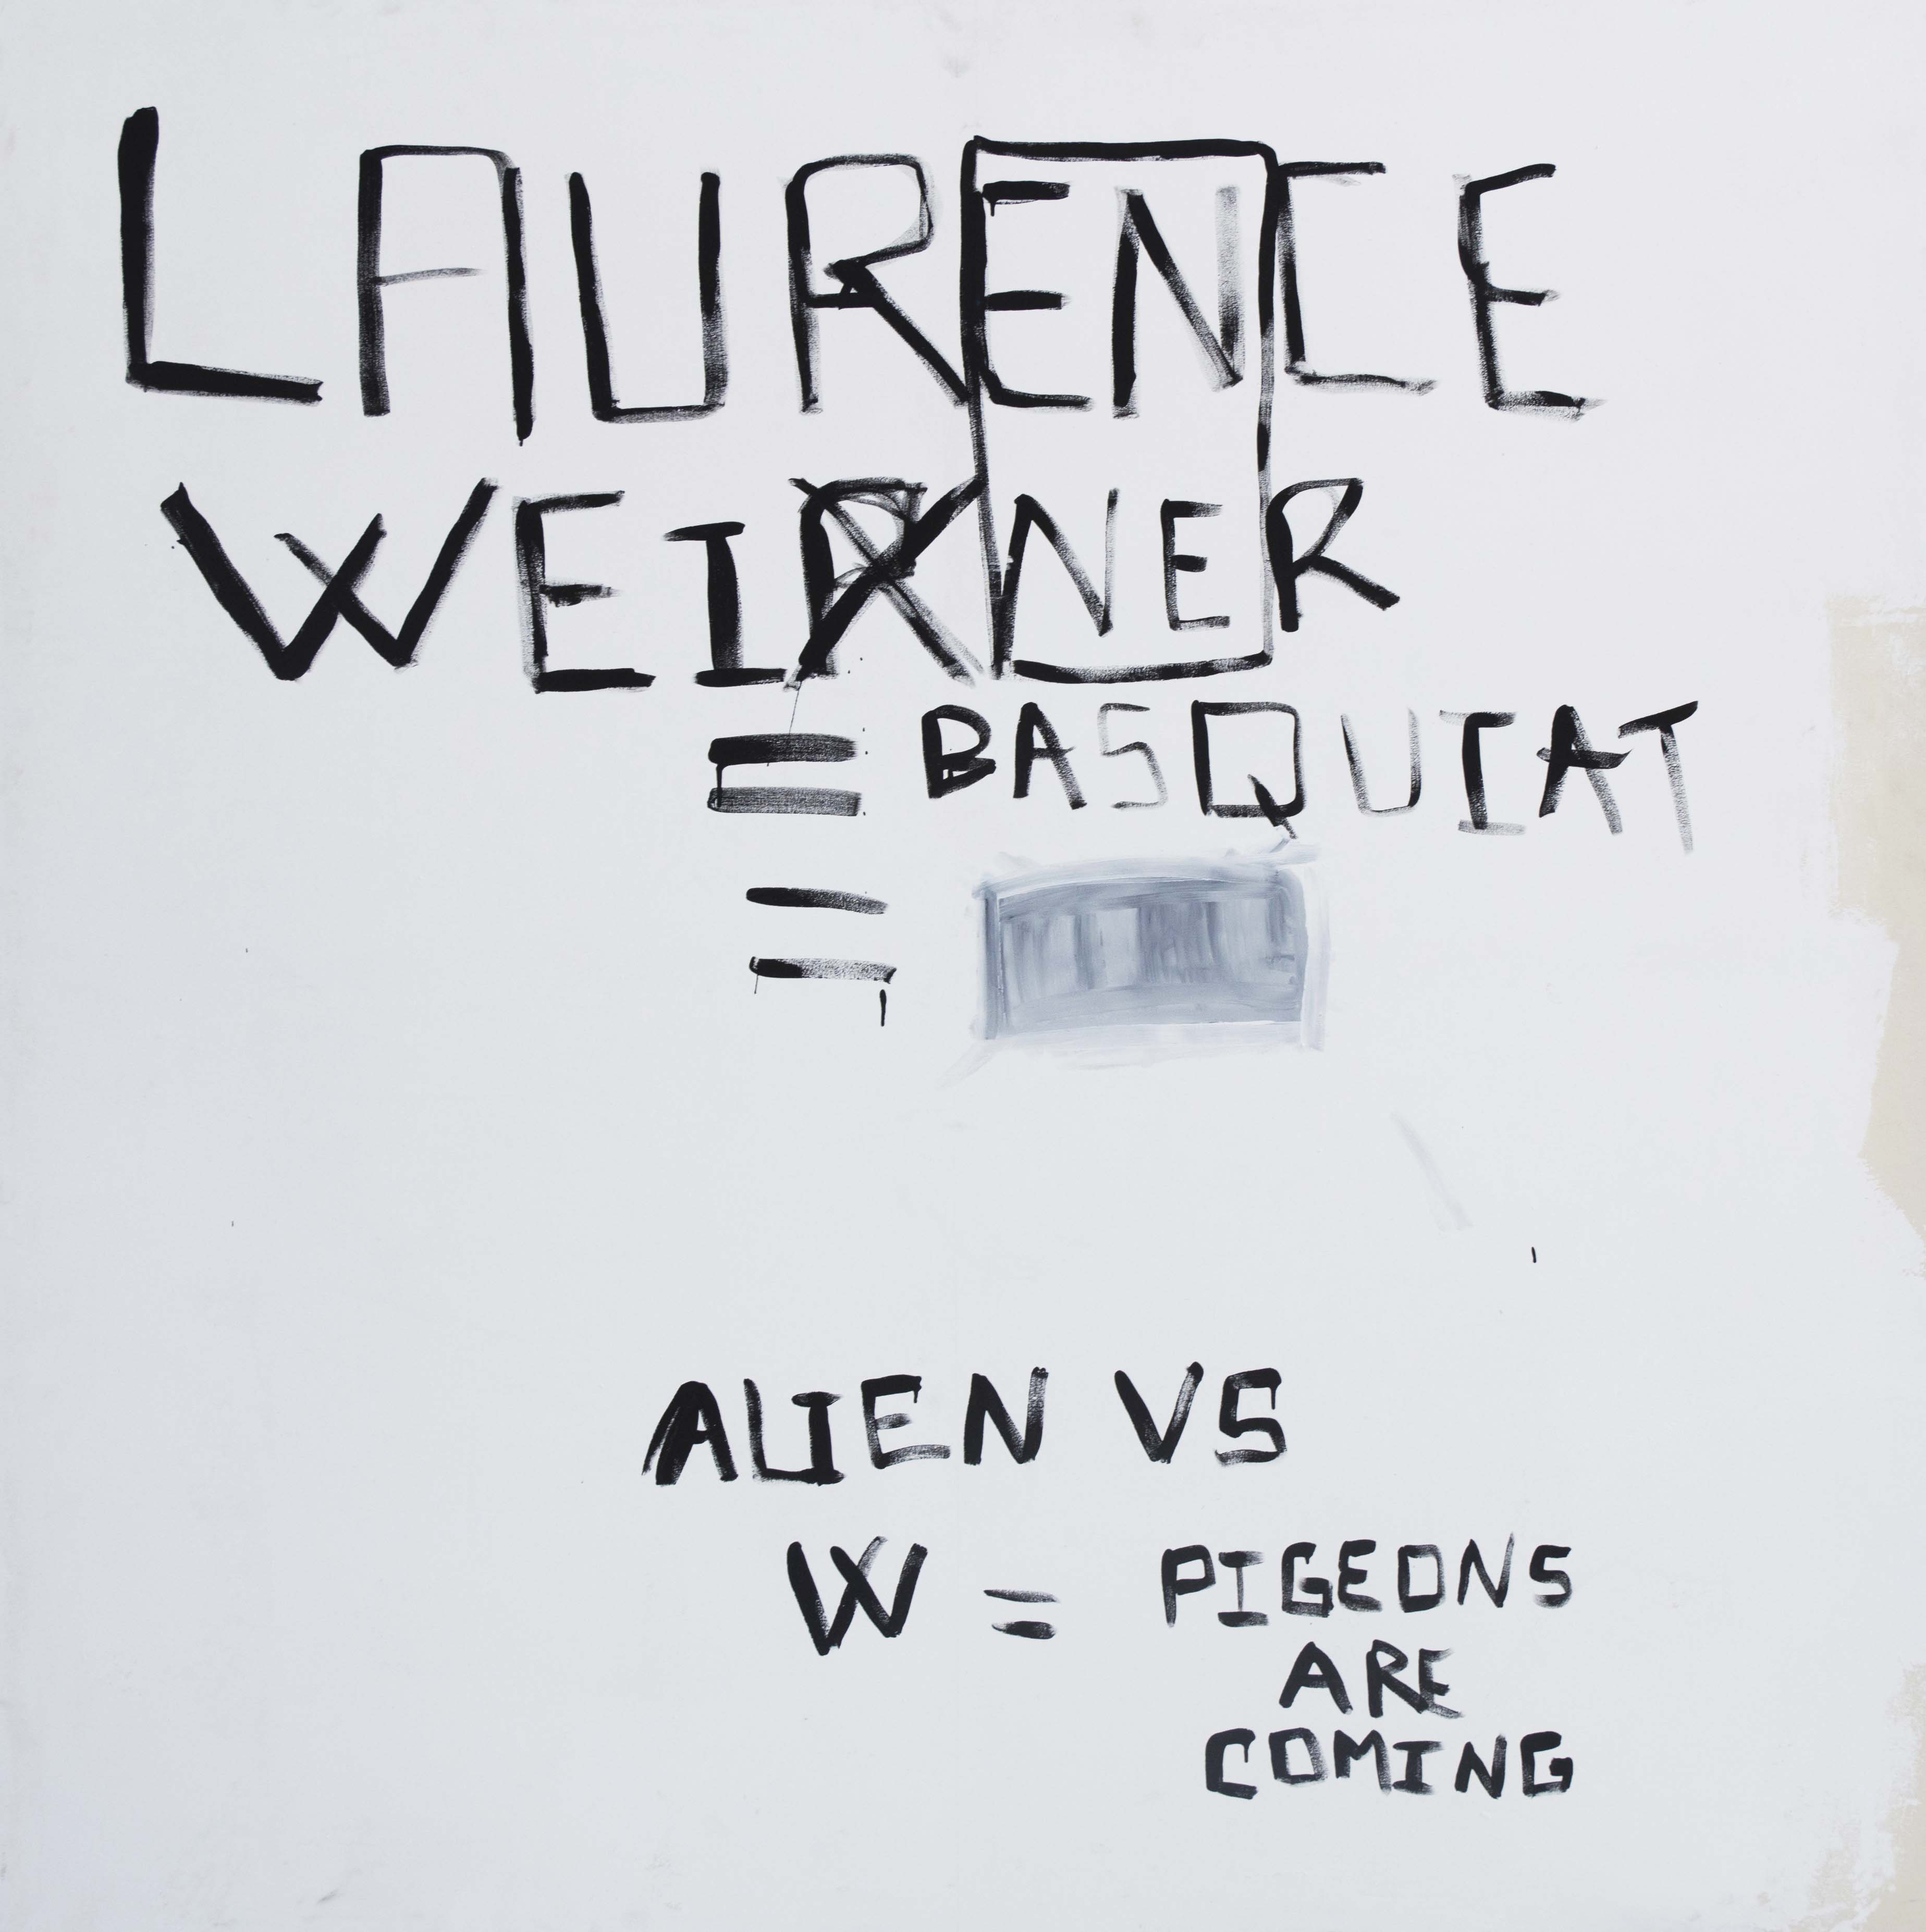 LAURENCE
WEIRNER
= BASQUIAT
=
ALIEN VS
W = PIGEONS
ARE
COMING